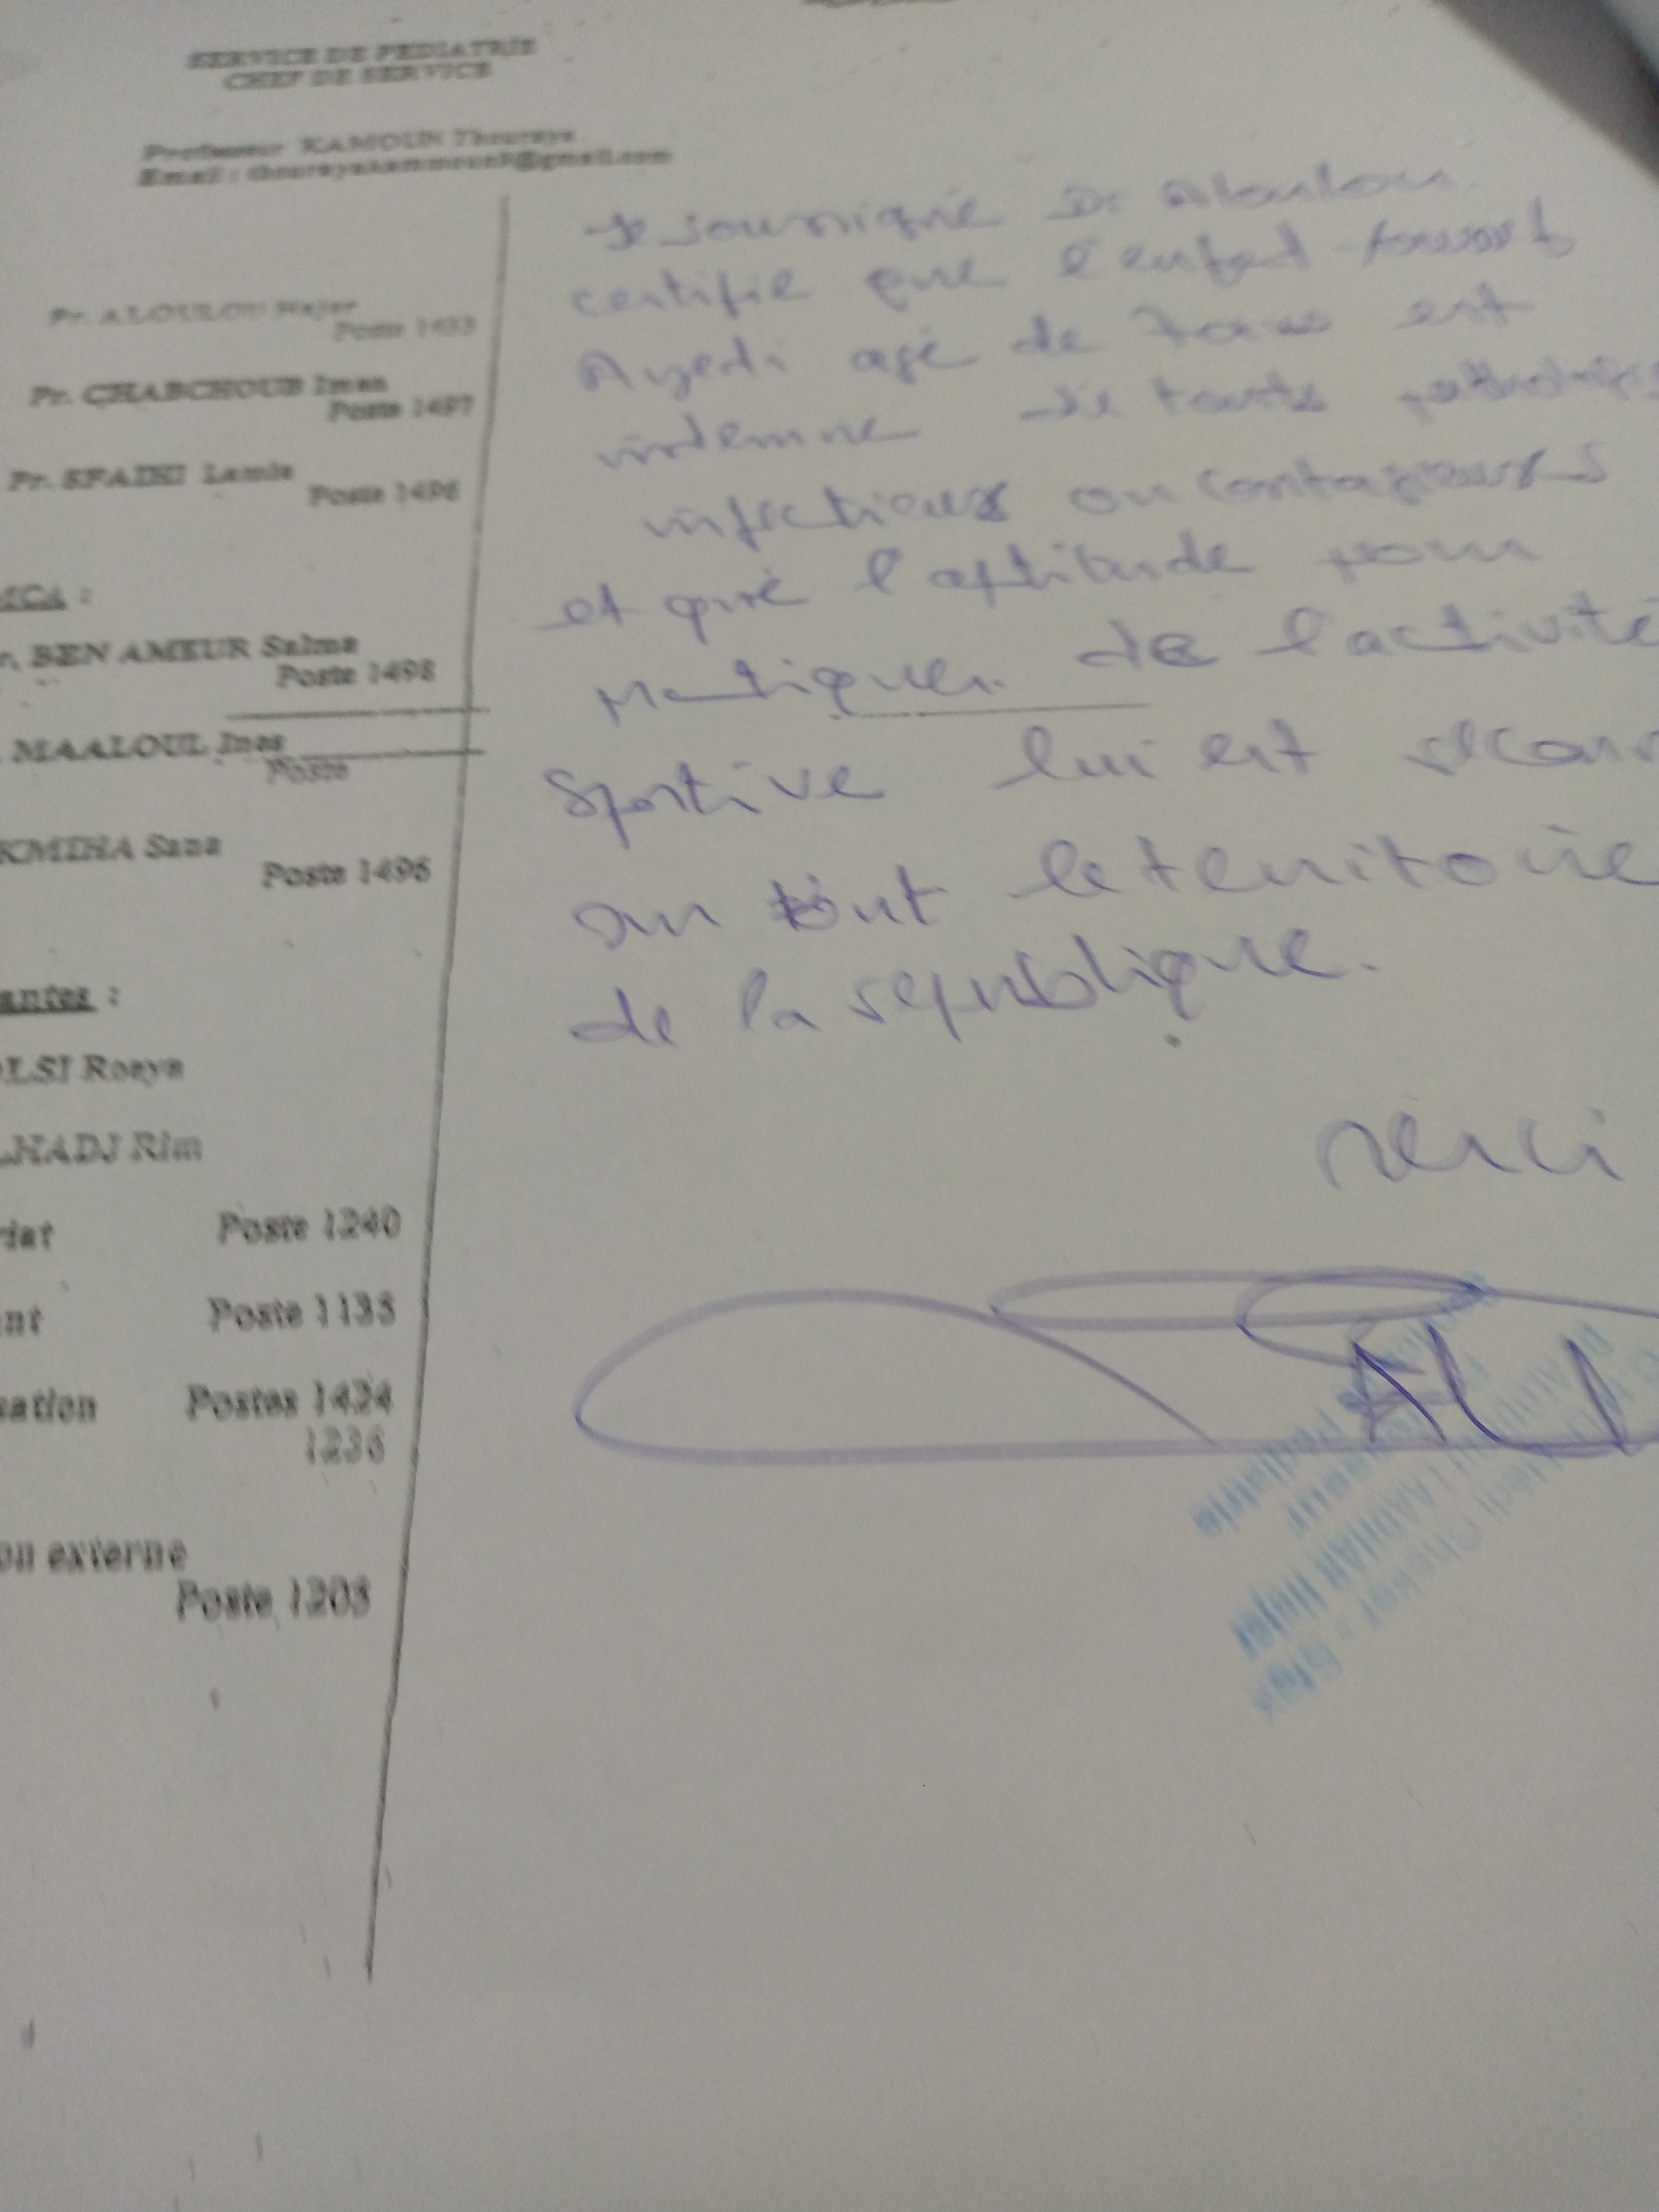 SERVICE DE PEDIATRIE
CHEF DE SERVICE
Professeur KAMOUN Thouraya
Email : thourayakammoun3@gmail.com
Pr. ALOULOU Hajer
Poste 1433
Pr. CHABCHOUB Imen
Poste 1497
Pr. SFAIHI Lamia
Poste 1496
MCA :
r. BEN AMEUR Salma
Poste 1498
MAALOUL Ines
Poste
KMIHA Sana
Poste 1496
antes :
LSI Roeya
LHADJ Rim
riat Poste 1240
nt Poste 1135
sation Postes 1424
1236
on externe
Poste 1203
Je soussigné Dr Aloulou
certifie que l'enfant
Ayedi agé de est
indemne de toutes
infectieuses ou contagieuses
et que l'aptitude pour
pratiquer de l'activité
Sportive lui est
sur tout le territoire
de la republique.
Merci
ALOULOU LAADHAR Hajer
Pédiatrie